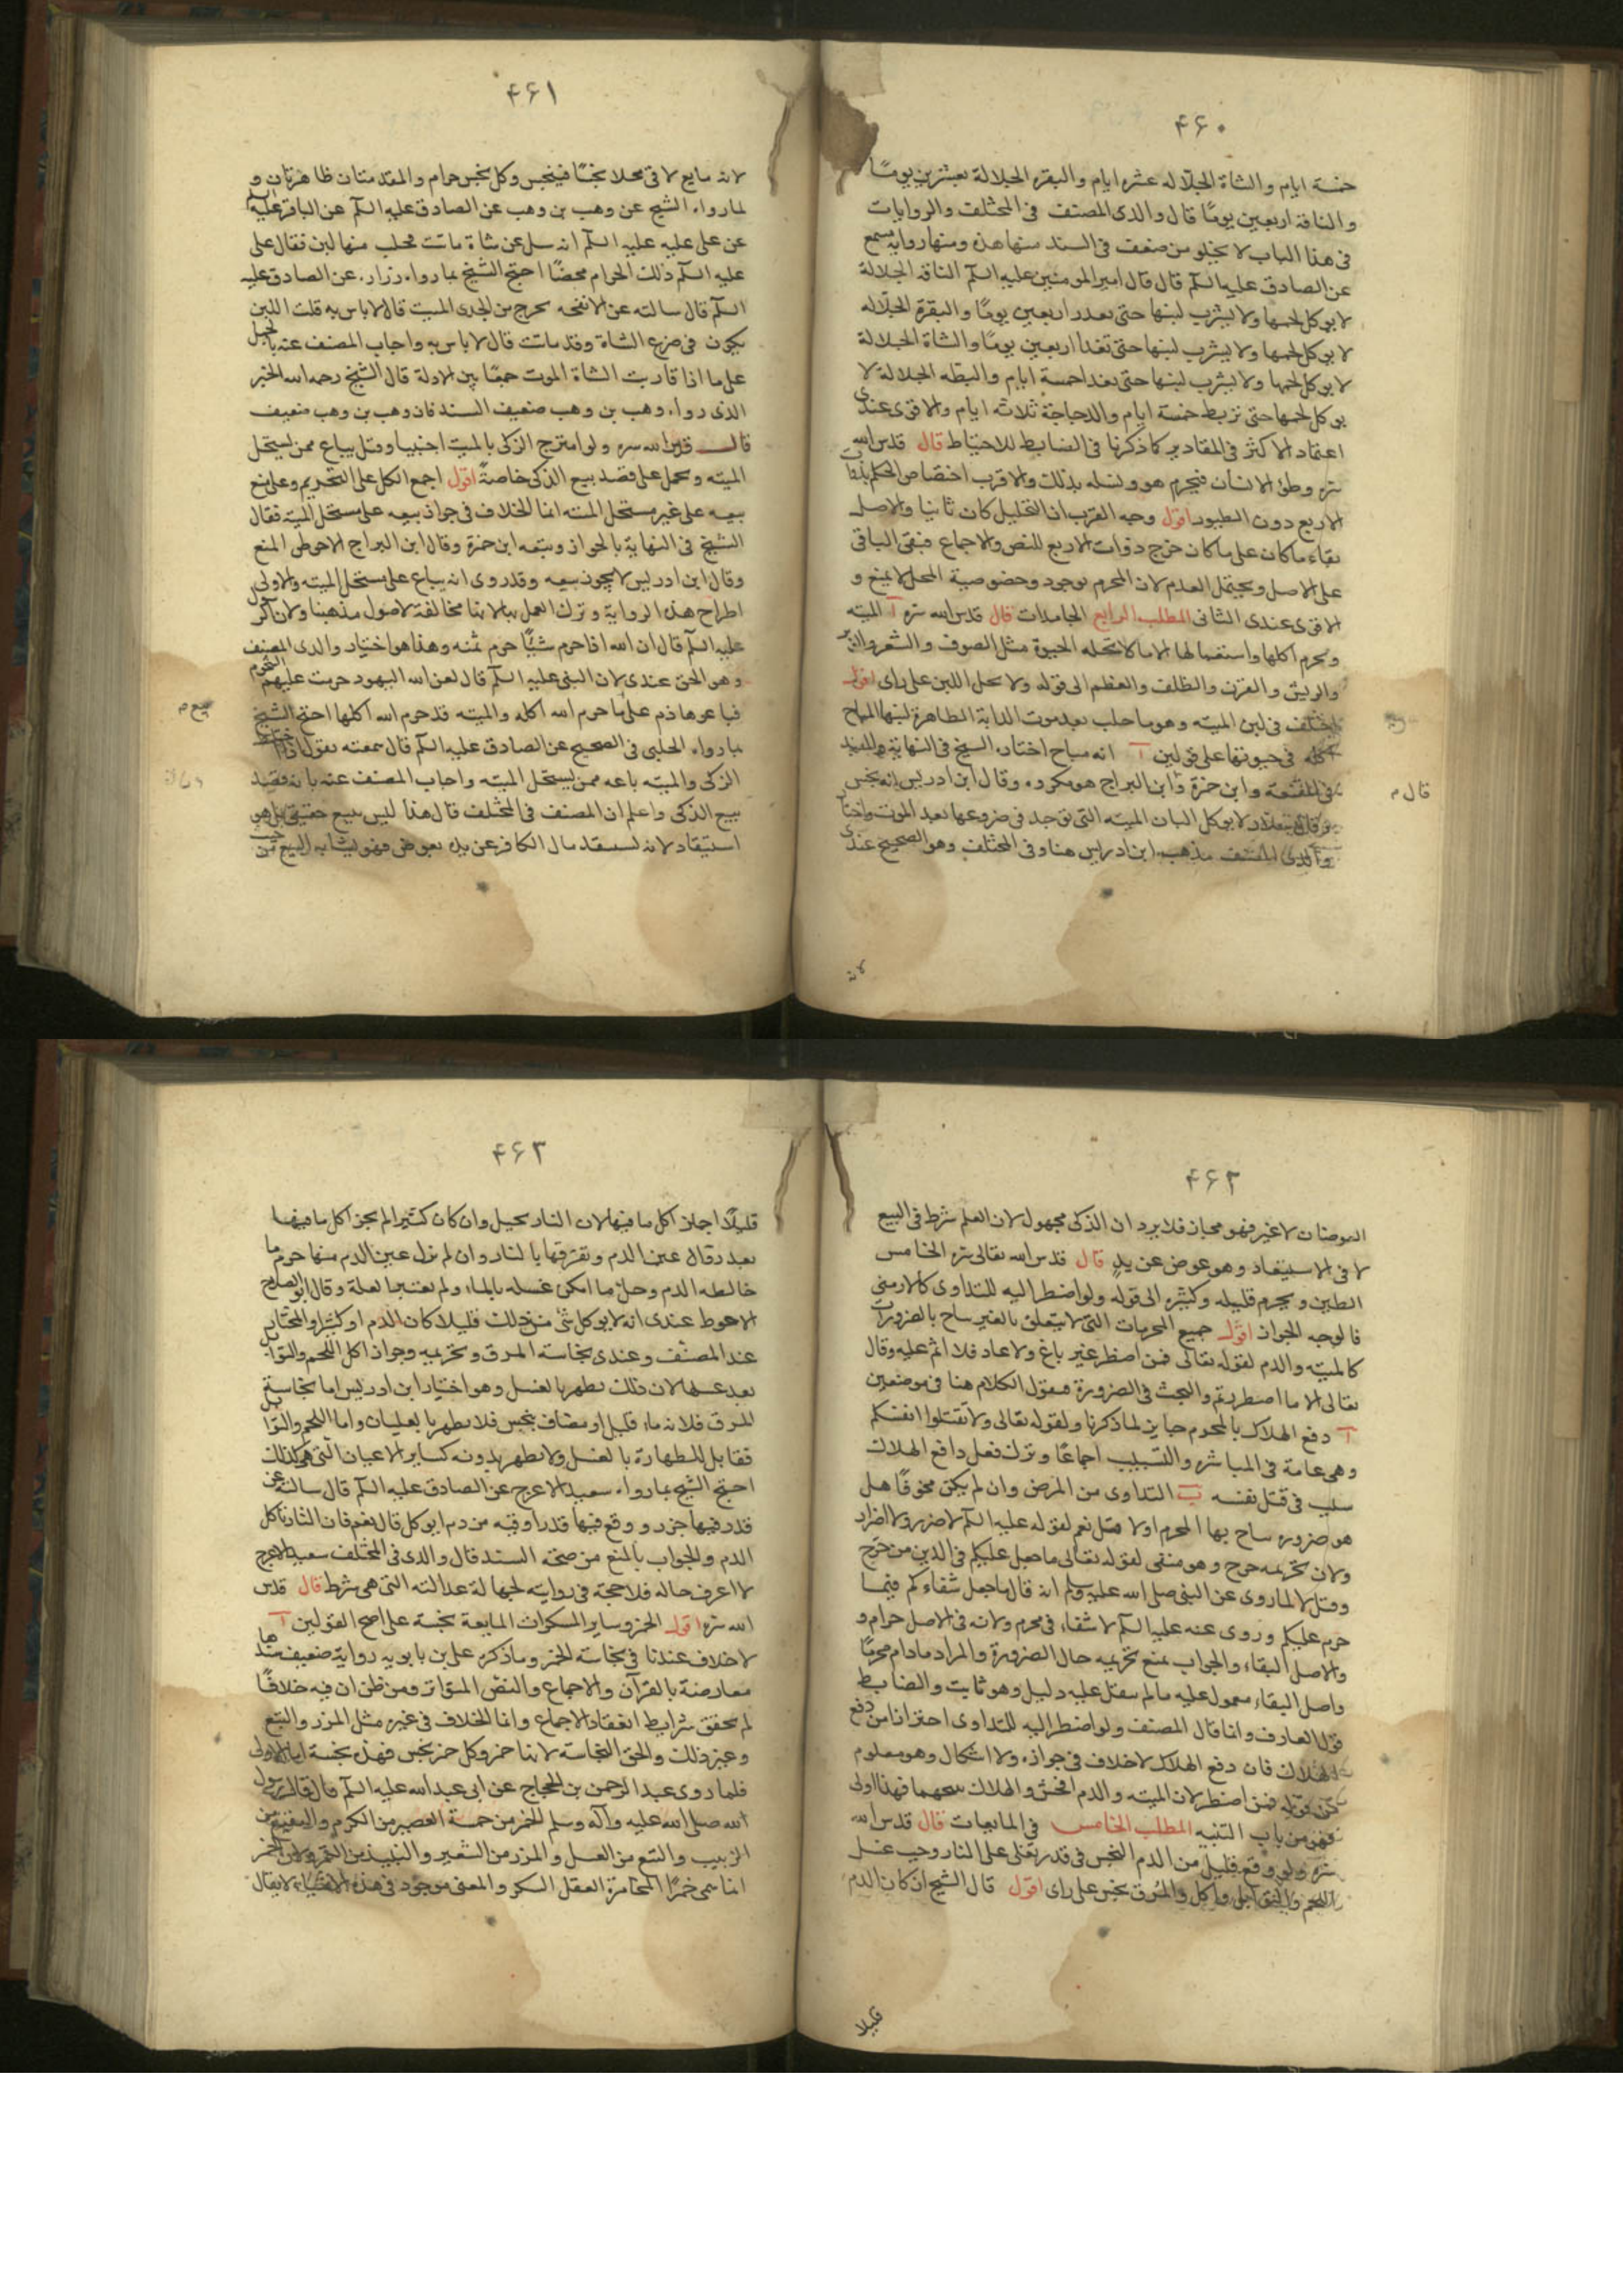 ۴۶۰
خمسة ايام والشاة الجلاله عشره ايام والبقره الجلالة بعشرين يومًا
والناقة اربعين يومًا قال والدى المصنف فى المختلف والروايات
فى هذا الباب لا يخلو من ضعف فى السند منها هذه ومنها رواية مسمع
عن الصادق عليه السلم قال قال امير المومنين عليه السلم الناقة الجلالة
لا يوكل لحمها ولا يشرب لبنها حتى تغذى اربعين يومًا والبقرة الجلاله
لا يوكل لحمها ولا يشرب لبنها حتى تغذا اربعين يومًا والشاة الجلالة
لا يوكل لحمها ولا يشرب لبنها حتى تغذا خمسة ايام والبطه الجلالة لا
يوكل لحمها حتى تربط خمسة ايام والدجاجة ثلاثه ايام والاقوى عندى
اعتماد الاكثر فى المقادير كما ذكرنا فى الضابط للاحتياط قال قدس الله
سره وطئ الانسان فيحرم هو ونسله بذلك والاقرب اختصاص الحكم بذوات
الاربع دون الطيور اقول وجه القرب ان التحليل كان ثابتا والاصل
بقاء ما كان على ما كان خرج ذوات الاربع للنص والاجماع فبقى الباقى
على الاصل ويحتمل العدم لان المحرم موجود وخصوصية المحل لا يمنع و
الاقوى عندى الثانى المطلب الرابع الجامدات قال قدس الله سره آ الميته
ويحرم اكلها واستعمالها الا ما لا تحله الحيوة مثل الصوف والشعر والوبر
والريش والقرن والظلف والعظم الى قوله ولا يحل اللبن على راى اقول
اختلف فى لبن الميته وهو ما حلب بعد موت الدابة الطاهرة لبنها المباح
اكله فى حيوتها على قولين آ انه مباح اختاره الشيخ فى النهاية والمفيد
فى المقنعه وابن حمزة وابن البراج هو مكروه وقال ابن ادريس انه نجس
لا يوكل البان الميته التى توجد فى ضروعها بعد الموت واختار
والدى المصنف مذهب ابن ادريس هنا وفى المختلف وهو الصحيح عندى
قال م
لانه
۴۶۱
لانه مايع لاقى محلا نجسًا فينجس وكل نجس حرام والمقدمتان ظاهرتان و
لما رواه الشيخ عن وهب بن وهب عن الصادق عليه السلم عن الباقر عليه السلم
عن على عليه عليه السلم انه سل عن شاة ماتت فحلب منها لبن فقال على
عليه السلم ذلك الحرام محضًا احتج الشيخ بما رواه زراره عن الصادق عليه
السلم قال سالته عن الانفحه تخرج من الجدى الميت قال لا باس به قلت اللبن
يكون فى ضرع الشاة وقد ماتت قال لا باس به واجاب المصنف عنه بالحمل
على ما اذا قاربت الشاة الموت جمعًا بين الادلة قال الشيخ رحمه الله الخبر
الذى رواه وهب بن وهب ضعيف السند فان وهب بن وهب ضعيف
قال قدس الله سره ولو امتزج الذكى بالميت اجتنبا وقيل يباع ممن يستحل
الميته ويحمل على قصد بيع الذكى خاصةً اقول اجمع الكل على التحريم وعلى منع
بيعه على غير مستحل الميته انما الخلاف فى جواز بيعه على مستحل الميته فقال
الشيخ فى النهاية بالجواز وتبعه ابن حمزة وقال ابن البراج الاحوط المنع
وقال ابن ادريس لا يجوز بيعه وقد روى انه يباع على مستحل الميته والاولى
اطراح هذه الرواية وترك العمل بها لانها مخالفة لاصول مذهبنا ولان الرسول
عليه السلم قال ان الله اذا حرم شيئًا حرم ثمنه وهذا هو اختيار والدى المصنف
وهو الحق عندى لان النبى عليه السلم قال لعن الله اليهود حرمت عليهم الشحوم
فباعوها ذم على ما حرم الله اكله والميته قد حرم الله اكلها احتج الشيخ
بما رواه الحلبى فى الصحيح عن الصادق عليه السلم قال سمعته يقول اذا اختلط
الزكى والميته باعه ممن يستحل الميته واجاب المصنف عنه بانه قصد
بيع الذكى واعلم ان المصنف فى المختلف قال هذا ليس ببيع حقيقى بل هو
استيقاد لانه لستنقذ مال الكافر عن يده بعوض فهو يشابه البيع من حيث
۴۶۲
العوضان لا غير فهو مجاز فلا يرد ان الذكى مجهول لان العلم شرط فى البيع
لا فى الاستيفاد وهو عوض عن يدٍ قال قدس الله تعالى سره الخامس
الطين ويحرم قليله وكثيره الى قوله ولو اضطر اليه للتداوى كالارمنى
فالوجه الجواز اقول جميع المحرمات التى لا يتعلق بالغير تباح بالضرورات
كالميته والدم لقوله تعالى فمن اضطر غير باغ ولا عاد فلا اثم عليه وقال
تعالى الا ما اضطررتم والبحث فى الضرورة فنقول الكلام هنا فى موضعين
آ دفع الهلاك بالمحرم جايز لما ذكرنا ولقوله تعالى ولا تقتلوا انفسكم
وهى عامة فى المباشره والتسبيب اجماعًا وترك فعل دافع الهلاك
سبب فى قتل نفسه ب التداوى من المرض وان لم يكن مخوفًا هل
هو ضروره تباح بها المحرم اولا قيل نعم لقوله عليه السلم لا ضرر ولا اضرار
ولان تحريمه حرج وهو منفى لقوله تعالى ما جعل عليكم فى الدين من حرج
وقيل لا لما روى عن النبى صلى الله عليه وسلم انه قال ما جعل شفاءكم فيما
حرم عليكم وروى عنه عليه السلم لا شفاء فى محرم ولانه فى الاصل حرام و
والاصل البقاء والجواب بمنع تحريمه حال الضرورة والمراد ما دام محرمًا
واصل البقاء معمول عليه ما لم ينقل عليه دليل وهو ثابت والضابط
قول العارف وانما قال المصنف ولو اضطر اليه للتداوى احترازا من دفع
الهلاك فان دفع الهلاك لا خلاف فى جوازه ولا اشكال وهو معلوم
من قوله فمن اضطر لان الميته والدم افحش والهلاك يبيحهما فهذا اولى
فهو من باب التنبيه المطلب الخامس فى المايعات قال قدس الله
سره ولو وقع قليل من الدم النجس فى قدر يغلى على النار وجب غسل
اللحم والتوابل واكل والمرق نجس على راى اقول قال الشيخ ان كان الدم
قليلا
۴۶۳
قليلًا جاز اكل ما فيها لان النار تحيل وان كان كثيرا لم يجز اكل ما فيها
خالطه الدم وحل ما امكن غسله بالماء ولم يعتبرا لعلة وقال ابو الصلاح
الاحوط عندى انه لا يوكل شى من ذلك قليلا كان الدم او كثيرا والمختار
عند المصنف وعندى نجاسة المرق وتحريمه وجواز اكل اللحم والتوابل
بعد غسلها لان ذلك يطهر بالغسل وهو اختيار ابن ادريس اما نجاسة
المرق فلانه ماء قليل او مضاف نجس فلا يطهر بالغليان واما اللحم والتوابل
فقابل للطهارة بالغسل ولا يطهر بدونه كساير الاعيان التى هى كذلك
احتج الشيخ بما رواه سعيد الاعرج عن الصادق عليه السلم قال سالته عن
قدر فيها جزور وقع فيها قدر اوقيه من دم ايوكل قال نعم فان النار تاكل
الدم والجواب بالمنع من صحة السند قال والدى فى المختلف سعيد الاعرج
لا اعرف حاله فلا حجة فى روايته لجهالة عدالته التى هى شرط قال قدس
الله سره اقول الخمر وساير المسكرات المايعة نجسة على اصح القولين آ
لا خلاف عندنا فى نجاسة الخمر وما ذكره على بن بابويه رواية ضعيف سندها
معارضة بالقرآن والاجماع والنص المتواتر ومن ظن ان فيه خلافًا
لم تحقق شرايط انعقاد الاجماع وانما الخلاف فى غيره مثل المزر والتبع
وغير ذلك والحق النجاسة لانها خمر وكل خمر نجس فهذه نجسة اما الاولى
فلما روى عبد الرحمن بن الحجاج عن ابى عبد الله عليه السلم قال قال رسول
الله صلى الله عليه وآله وسلم الخمر من خمسة العصير من الكرم والنقيع من
الزبيب والتبع من العسل والمزر من الشعير والنبيذ من التمر ولان الخمر
انما سمى خمرًا لمخامرة العقل السكر والمعنى موجود فى هذه الاشياء لا يقال